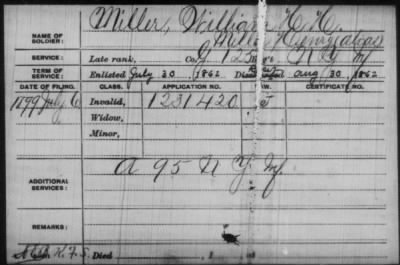 NAME OF SOLDIER: Miller, William H. H.
Miller, Henry (alias)
SERVICE: Late rank, Co. G, 125 Reg't N. Y. Inf
TERM OF SERVICE: Enlisted July 30, 1862 Discharged Aug 30, 1862
DATE OF FILING. CLASS. APPLICATION NO. LAW. CERTIFICATE NO.
1899 July 6 Invalid, 1231420
Widow,
Minor,
ADDITIONAL SERVICES: A 95 N Y Inf.
REMARKS:
H. F. S. Died , 1